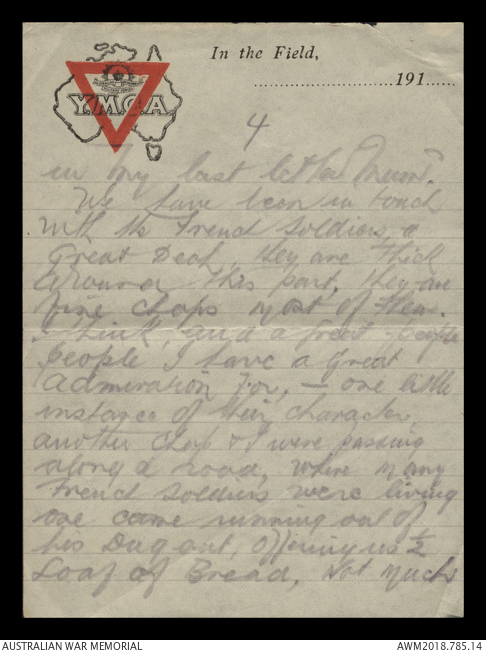 In the Field,
Y.M.C.A
..............................191......
4
in my last letter Mum.
We have been in touch
with the French Soldiers a
Great Deal, they are thick
around this part. they are
fine chaps most of them.
I think, and a Great people
people I have a Great
admiration for, – one little
instance of their character
another chap & I were passing
along a road, where many
French soldiers were living
one came running out of
his Dug out, offering us ½
Loaf of Bread, Not much
AUSTRALIAN WAR MEMORIAL
AWM2018.785.14